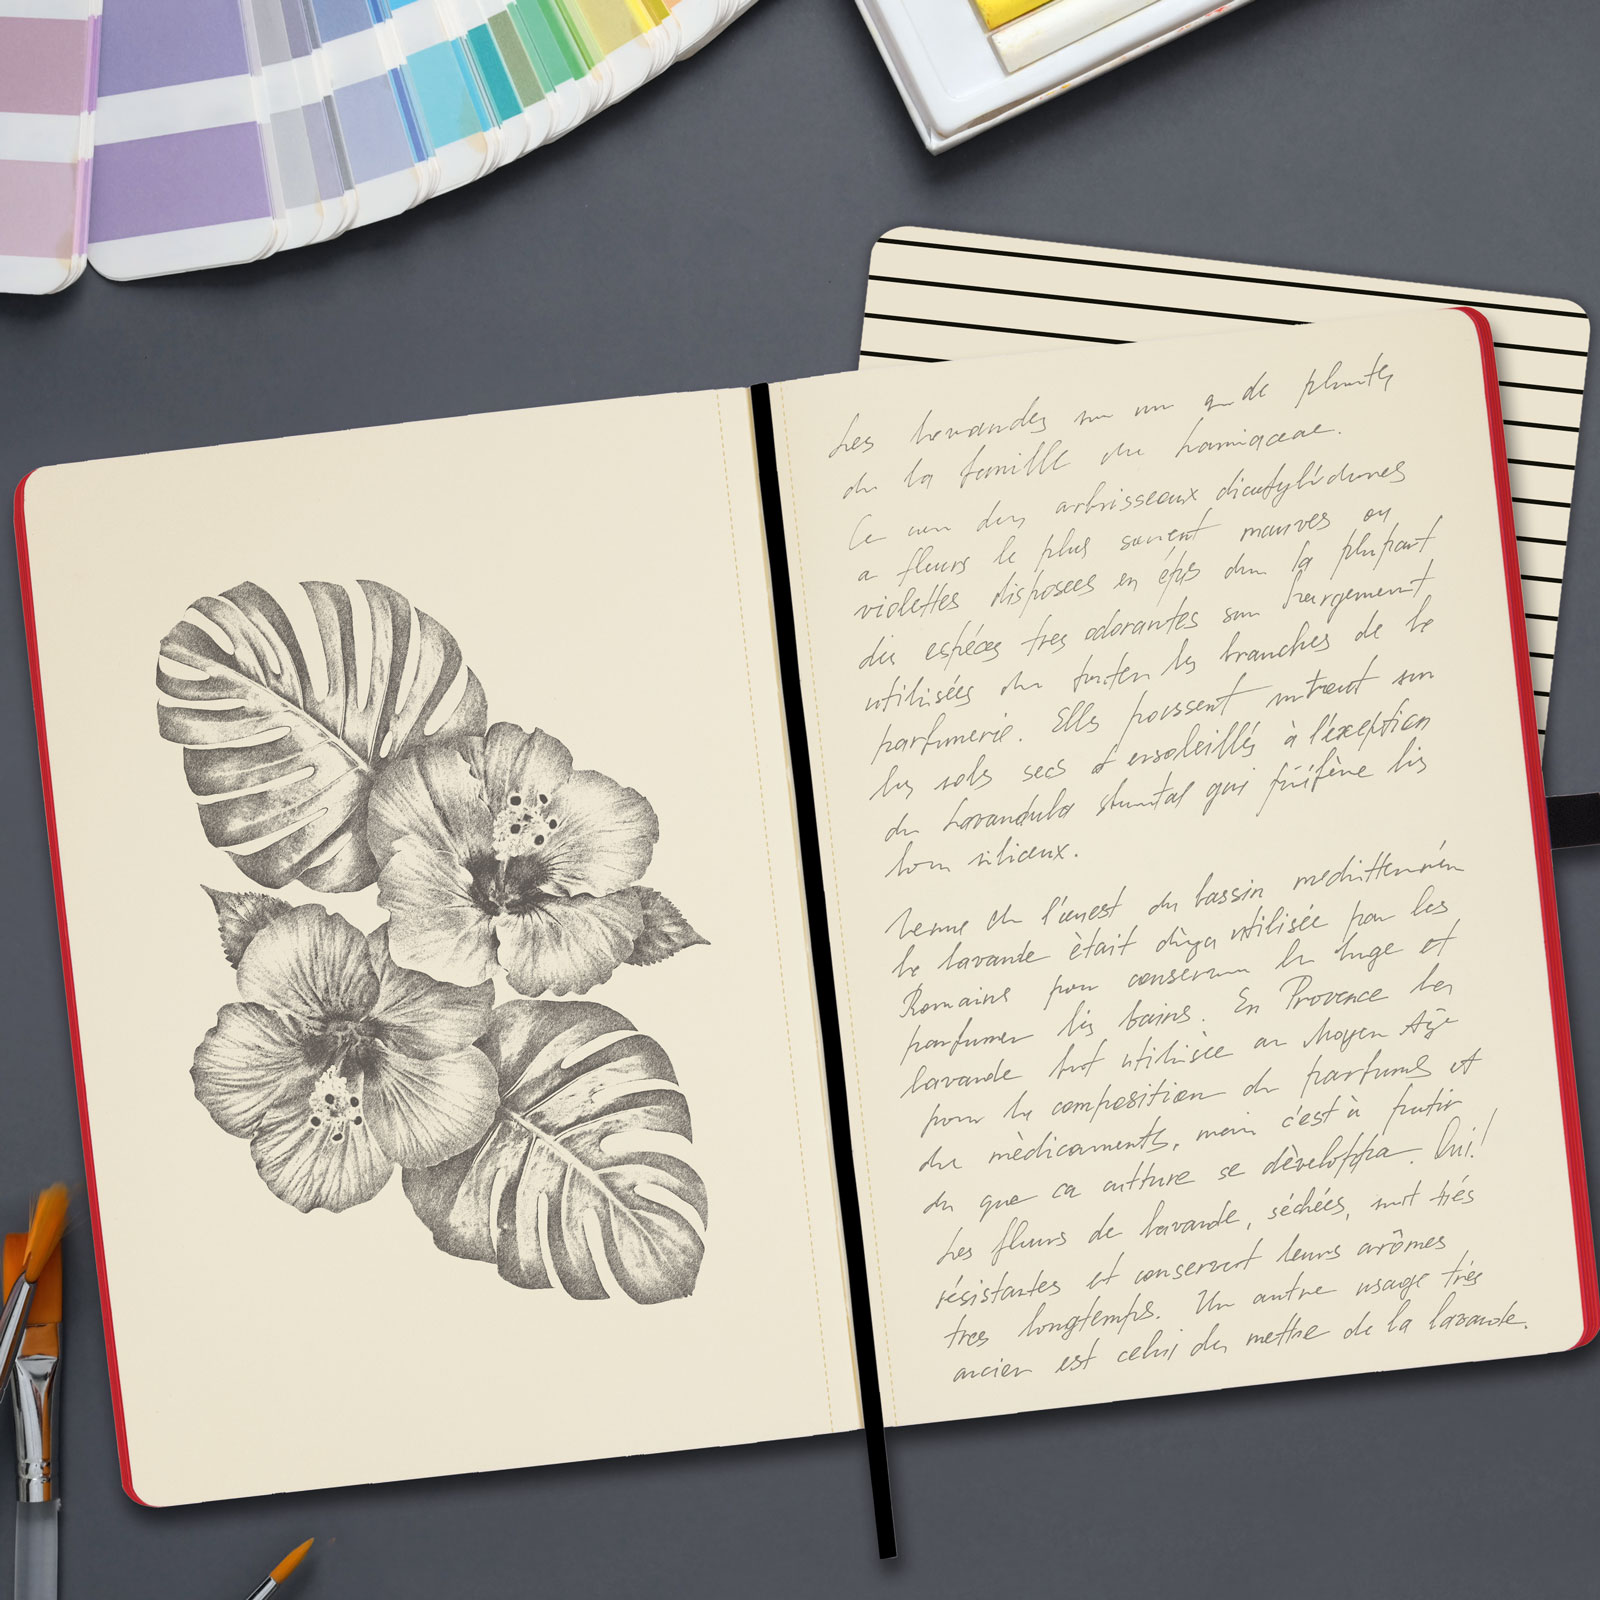 Les lavandes un de plantes
de la famille du Lamiaceae.
Ce arbrisseaux dicotylédones
a fleurs le plus souvent mauves ou
violettes disposees en épis la plupart
des espéces tres odorantes largement
utilisées les branches de la
parfumerie. Elles poussent
les sols secs et ensoleillés à l'exeption
du Lavandula qui préfère les
siliceux.
l'ouest du bassin
la lavande ètait dèja utilisée par les
Romains pour conserver le linge et
parfumer les bains. En Provence la
lavande fut utilisèe au Moyen Age
pour la composition de parfums et
du mèdicaments, mais c'est à partir
du que sa culture se dèveloppa. Oui!
Les fleurs de lavande, séchées, sont trés
résistantes et conservent leurs arômes
tres longtemps. Un autre usage trés
ancien est celui du mettre de la lavande.